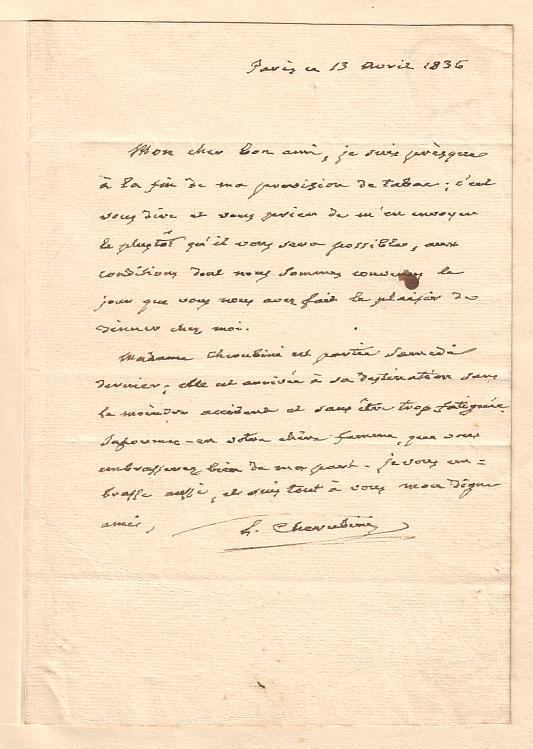 Paris ce 13 Avril 1836
Mon cher bon ami, je suis prèsque
à la fin de ma provision de tabac; c'est
vous dire et vous prier de m'en envoyer
le plustôt qu'il vous sera possible, aux
conditions dont nous sommes convenus le
jour que vous nous avez fait le plaisir de
dinner chez moi.
Madame Cherubini est partie Samedi
dernier; elle est arrivée à sa destination sans
le moindre accident et sans être trop fatiguée.
Informez-en votre chère femme, que vous
embrasserez bien de ma part. je vous em=
brasse aussi, et suis tout à vous mon digne
ami,
L. Cherubini